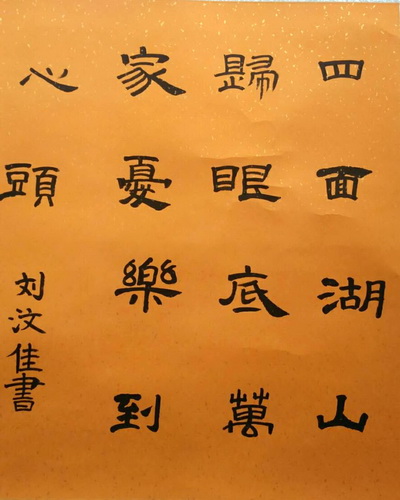 四面湖山
歸眼底萬
家憂樂到
心頭
刘汶佳書